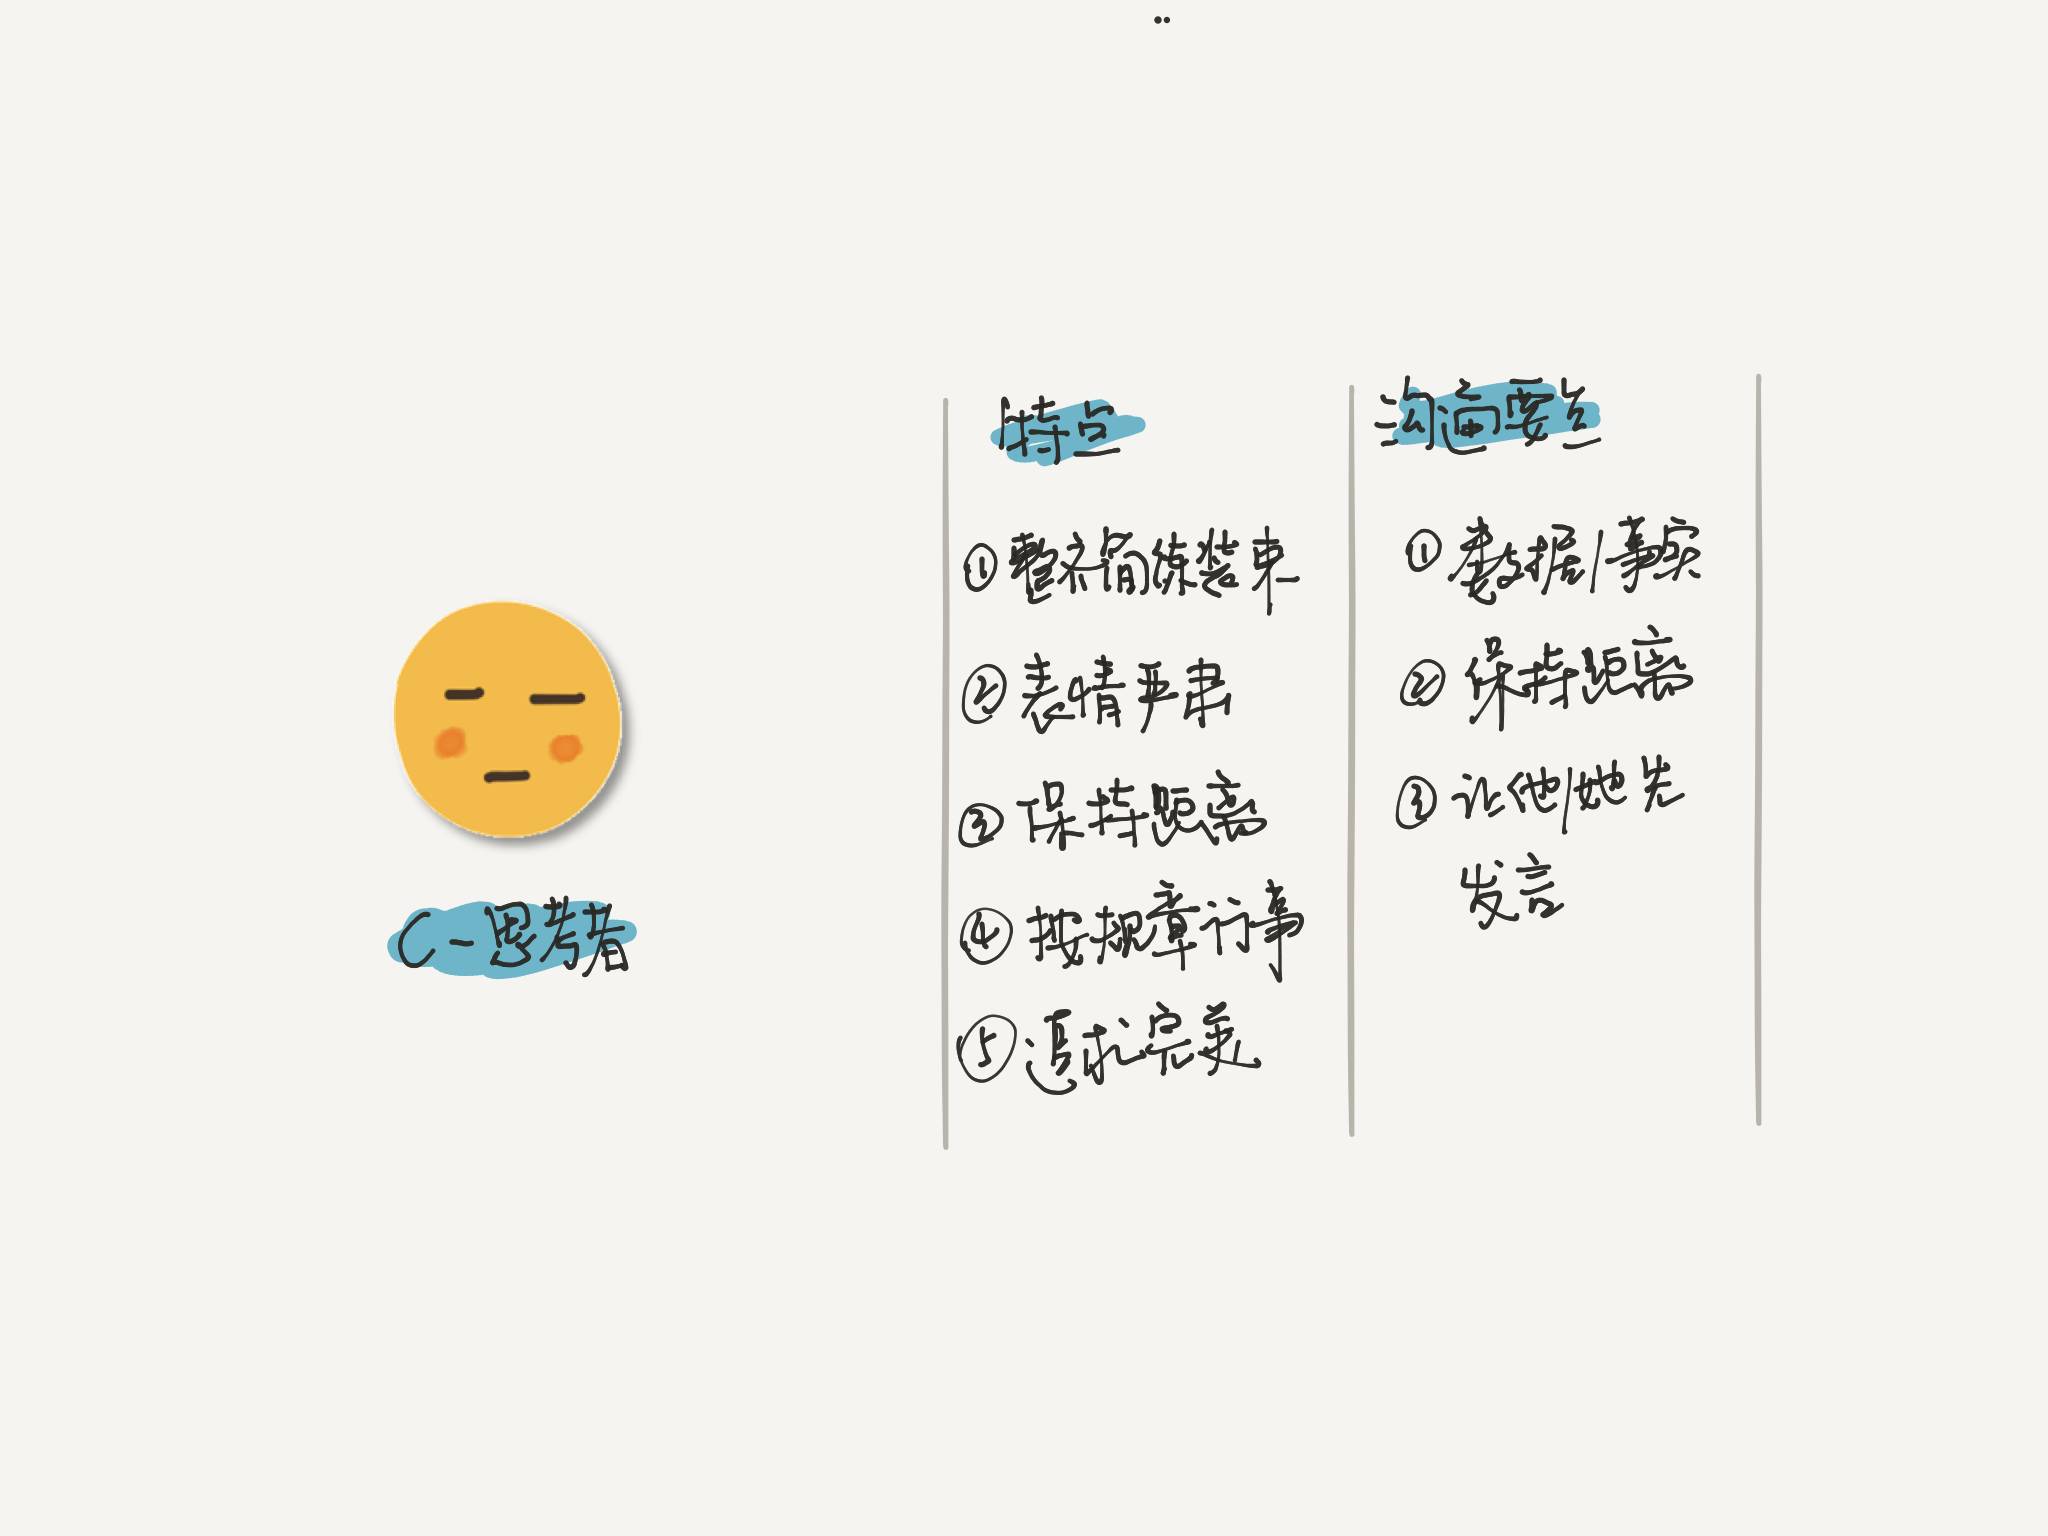 C-思考者
特点
①整齐简练装束
②表情严肃
③保持距离
④按规章行事
⑤追求完美
沟通要点
①数据/事实
②保持距离
③让他/她先
发言